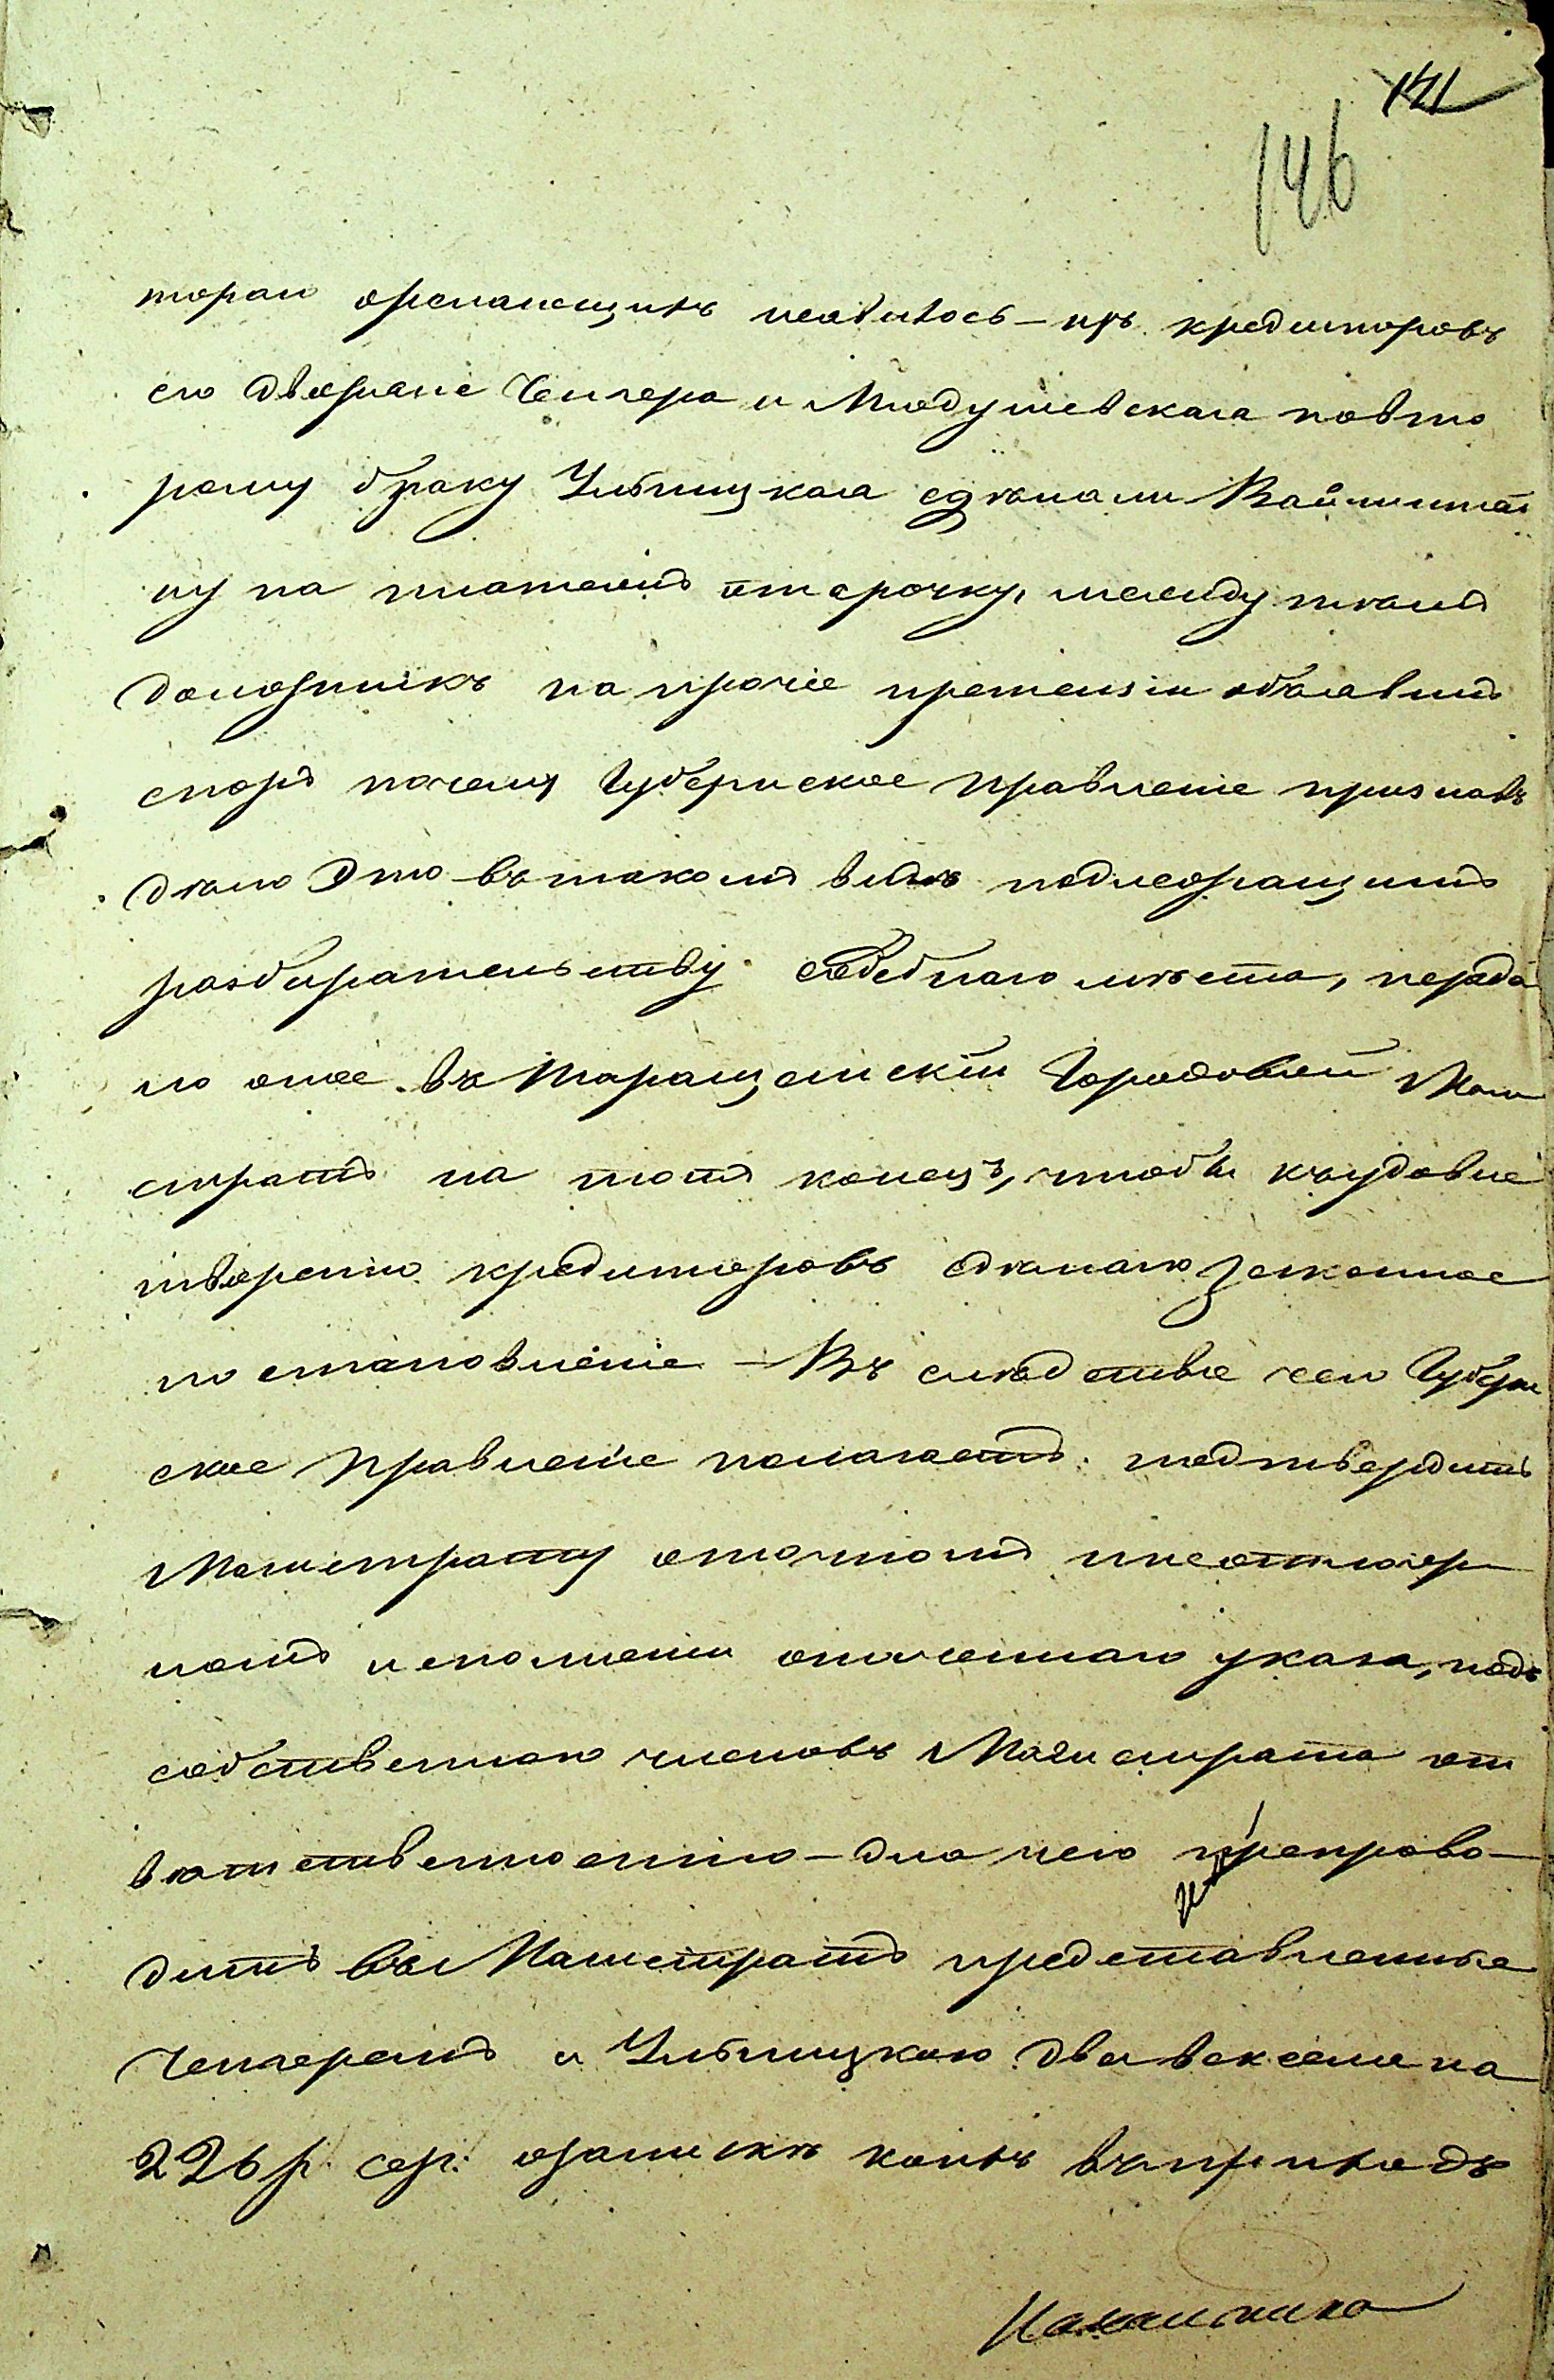 141
146
торги желающихъ неявилось – изъ кредиторовъ
его дворяне Чаплера и Млодушевская повто
рому браку Ульницкая сделали Вайнштей
ну на платежъ отсрочку, между темъ
должникъ на прочіе претензіи объявилъ
споръ почему Губернское Правленіе признавъ
дѣло это въ такомъ видѣ подлежащимъ
разбирательству судебнаго мѣста, переда
ло оное въ Таращанскій Городовый Маги
стратъ на тотъ конецъ, чтобы къ удовле
творенію кредиторовъ сдѣлало законное
постановленіе – Въ следствіе чего Губерн
ское Правленіе полагаетъ: подтвердить
Магистрату о точномъ и неотлагатель
номъ исполненіи означеннаго указа, подъ
собственною членовъ Магистрата от
вѣтственностію – для чего препрово
дить въ Магистратъ представленные
и Ульницкою два векселя на
226 р. сер: о запискѣ коихъ въ приходъ